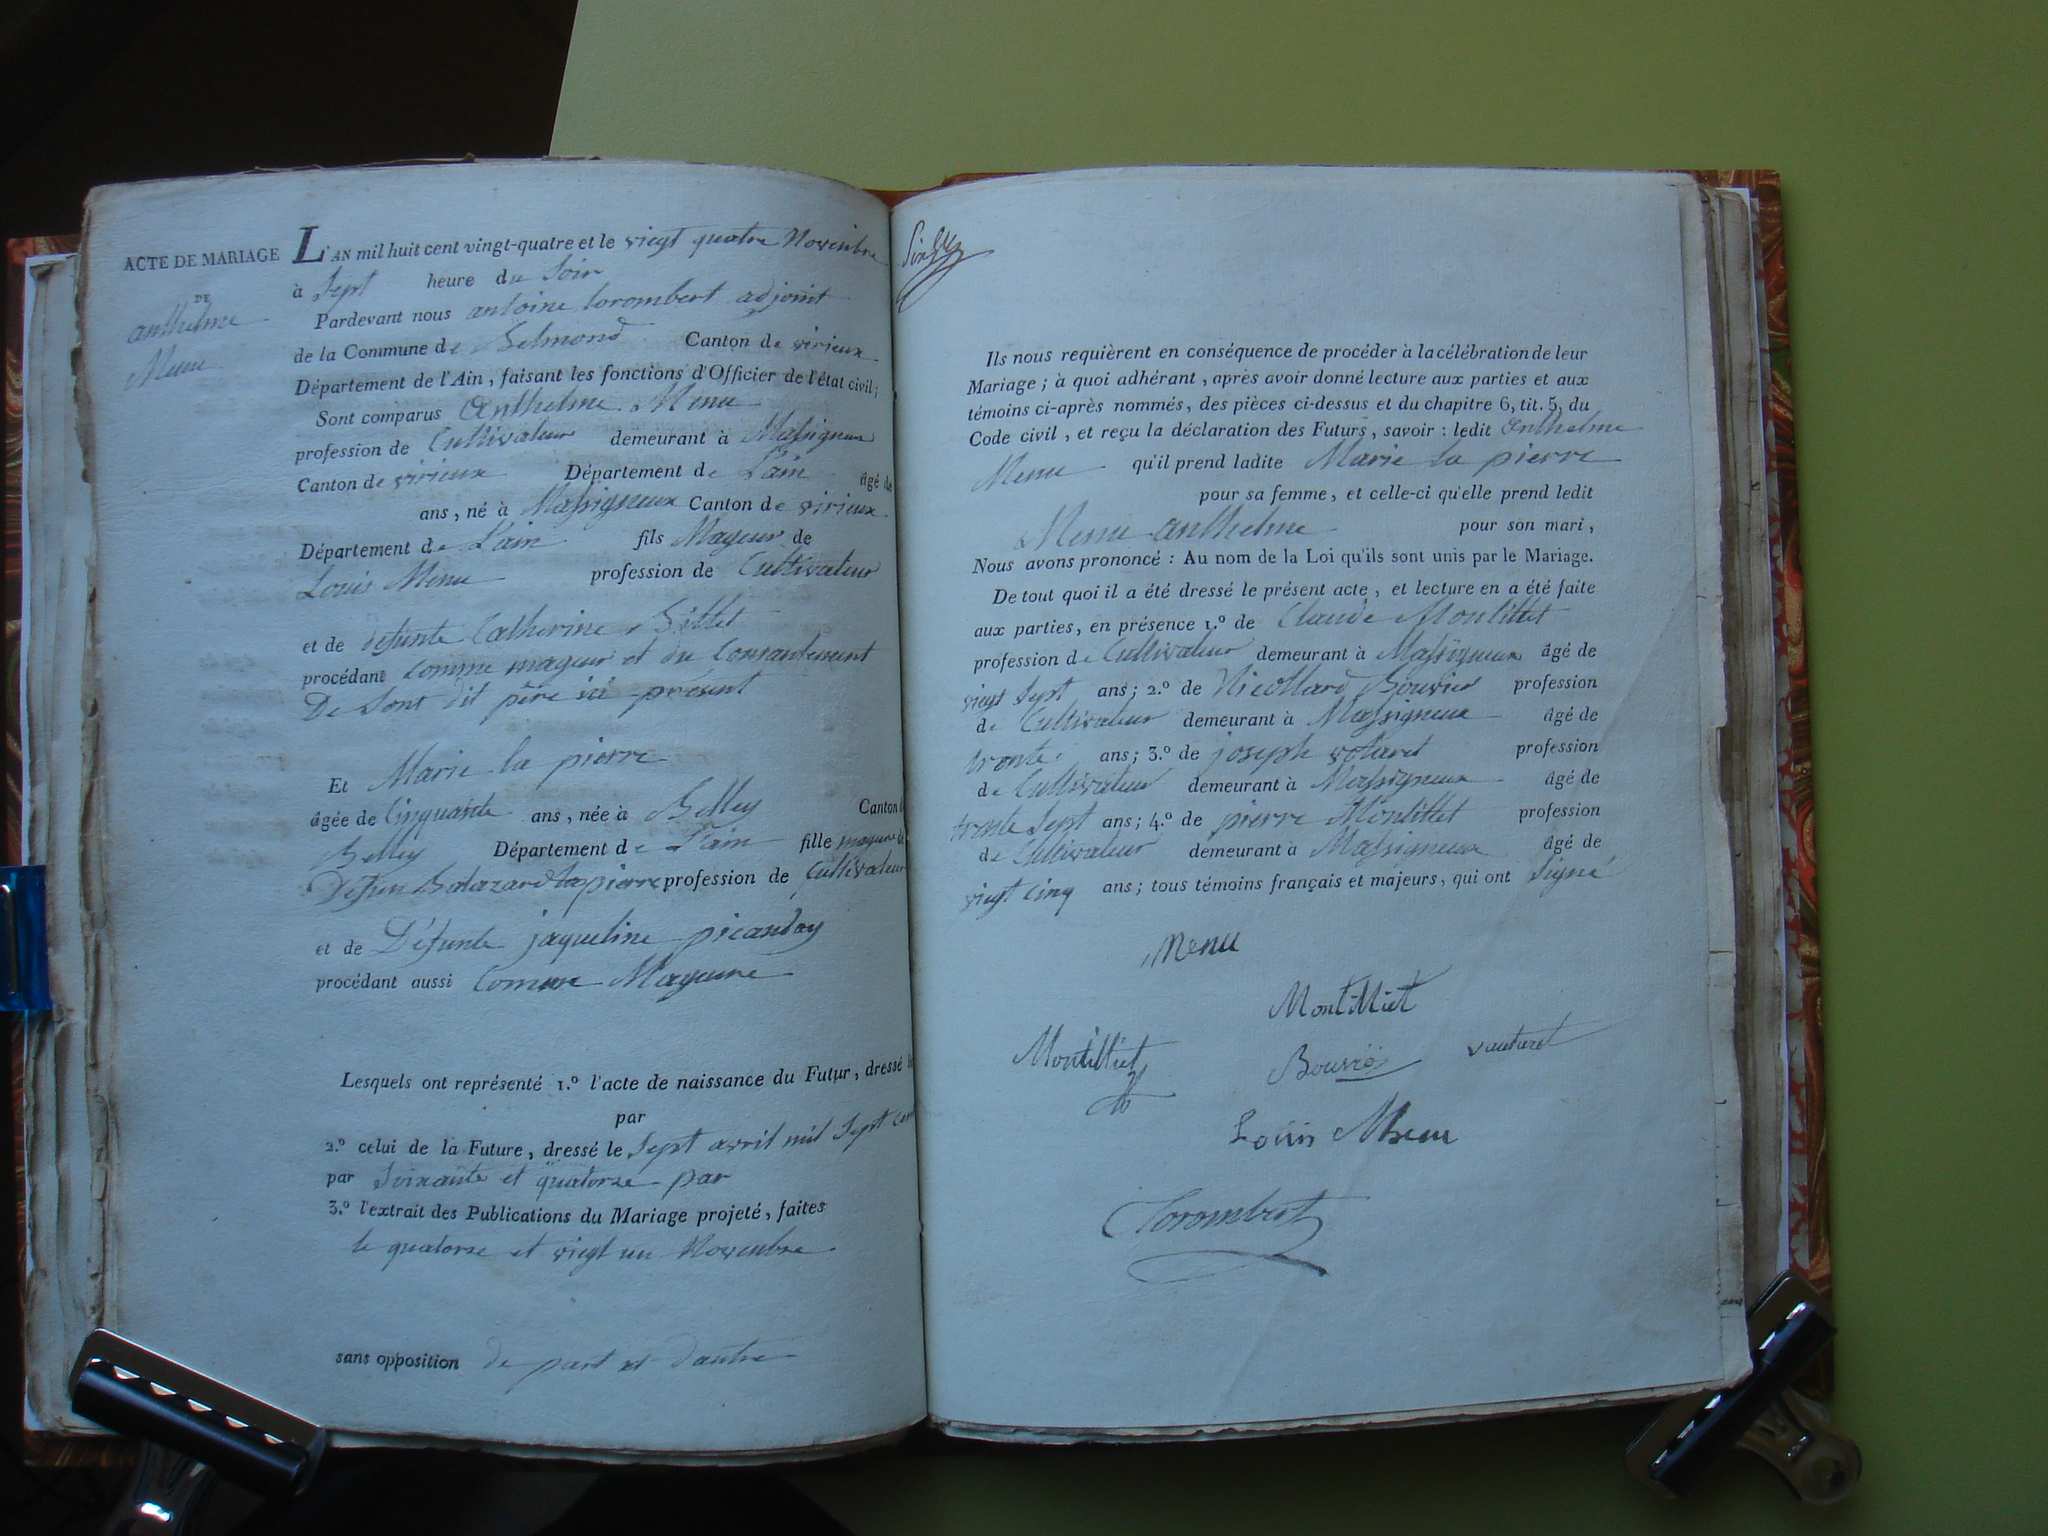 ACTE DE MARIAGE
DE
anthelme
Menu
L'AN mil huit cent vingt-quatre et le viegt quatre Novembre
à Sept heure du Soir
Pardevant nous antoine torombert adjoint
de la Commune de Belmond Canton de virieux
Département de l'Ain, faisant les fonctions d'Officier de l'état civil;
Sont comparus Anthelme Menu
profession de Cultivateur demeurant à Massigneux
Canton de virieux Département de L'ain âgé de
ans, né à Massigneux Canton de virieux
Département de L'ain fils Mageur de
Louis Menu profession de Cultivateur
et de defunte Catherine Billet
procédant comme mageur et du Consantement
De Sont dit père ici présent
Et Marie la pierre
âgée de Cinquante ans, née à Belley Canton
Belley Département de L'ain fille mageure de
Defun Balazard la pierre profession de Cultivateur
et de Défunte jaqueline picanday
procédant aussi Comme Mageure
Lesquels ont représenté 1.º l'acte de naissance du Futur, dressé
par
2.º celui de la Future, dressé le Sept avril mil Sept cent
par Soixante et quatorze par
3.º l'extrait des Publications du Mariage projeté, faites
le quatorze et viegt un Novembre
sans opposition de part et dautre
Ils nous requièrent en conséquence de procéder à la célébration de leur
Mariage; à quoi adhérant, après avoir donné lecture aux parties et aux
témoins ci-après nommés, des pièces ci-dessus et du chapitre 6, tit. 5, du
Code civil, et reçu la déclaration des Futurs, savoir: ledit Anthelme
Menu qu'il prend ladite Marie la pierre
pour sa femme, et celle-ci qu'elle prend ledit
Menu anthelme pour son mari,
Nous avons prononcé: Au nom de la Loi qu'ils sont unis par le Mariage.
De tout quoi il a été dressé le présent acte, et lecture en a été faite
aux parties, en présence 1.º de Claude Montillet
profession de Cultivateur demeurant à Massigneux âgé de
viegt Sept ans; 2.º de Nicollard Bouvier profession
de Cultivateur demeurant à Massigneux âgé de
tronte ans; 3.º de joseph votaret profession
de Cultivateur demeurant à Massigneux âgé de
tronte Sept ans; 4.º de pierre Montillet profession
de Cultivateur demeurant à Massigneux âgé de
viegt cinq ans; tous témoins français et majeurs, qui ont Signé
Menu
Montilliet
Montilliet Bouvié vautaret
Louis Menu
Torombert